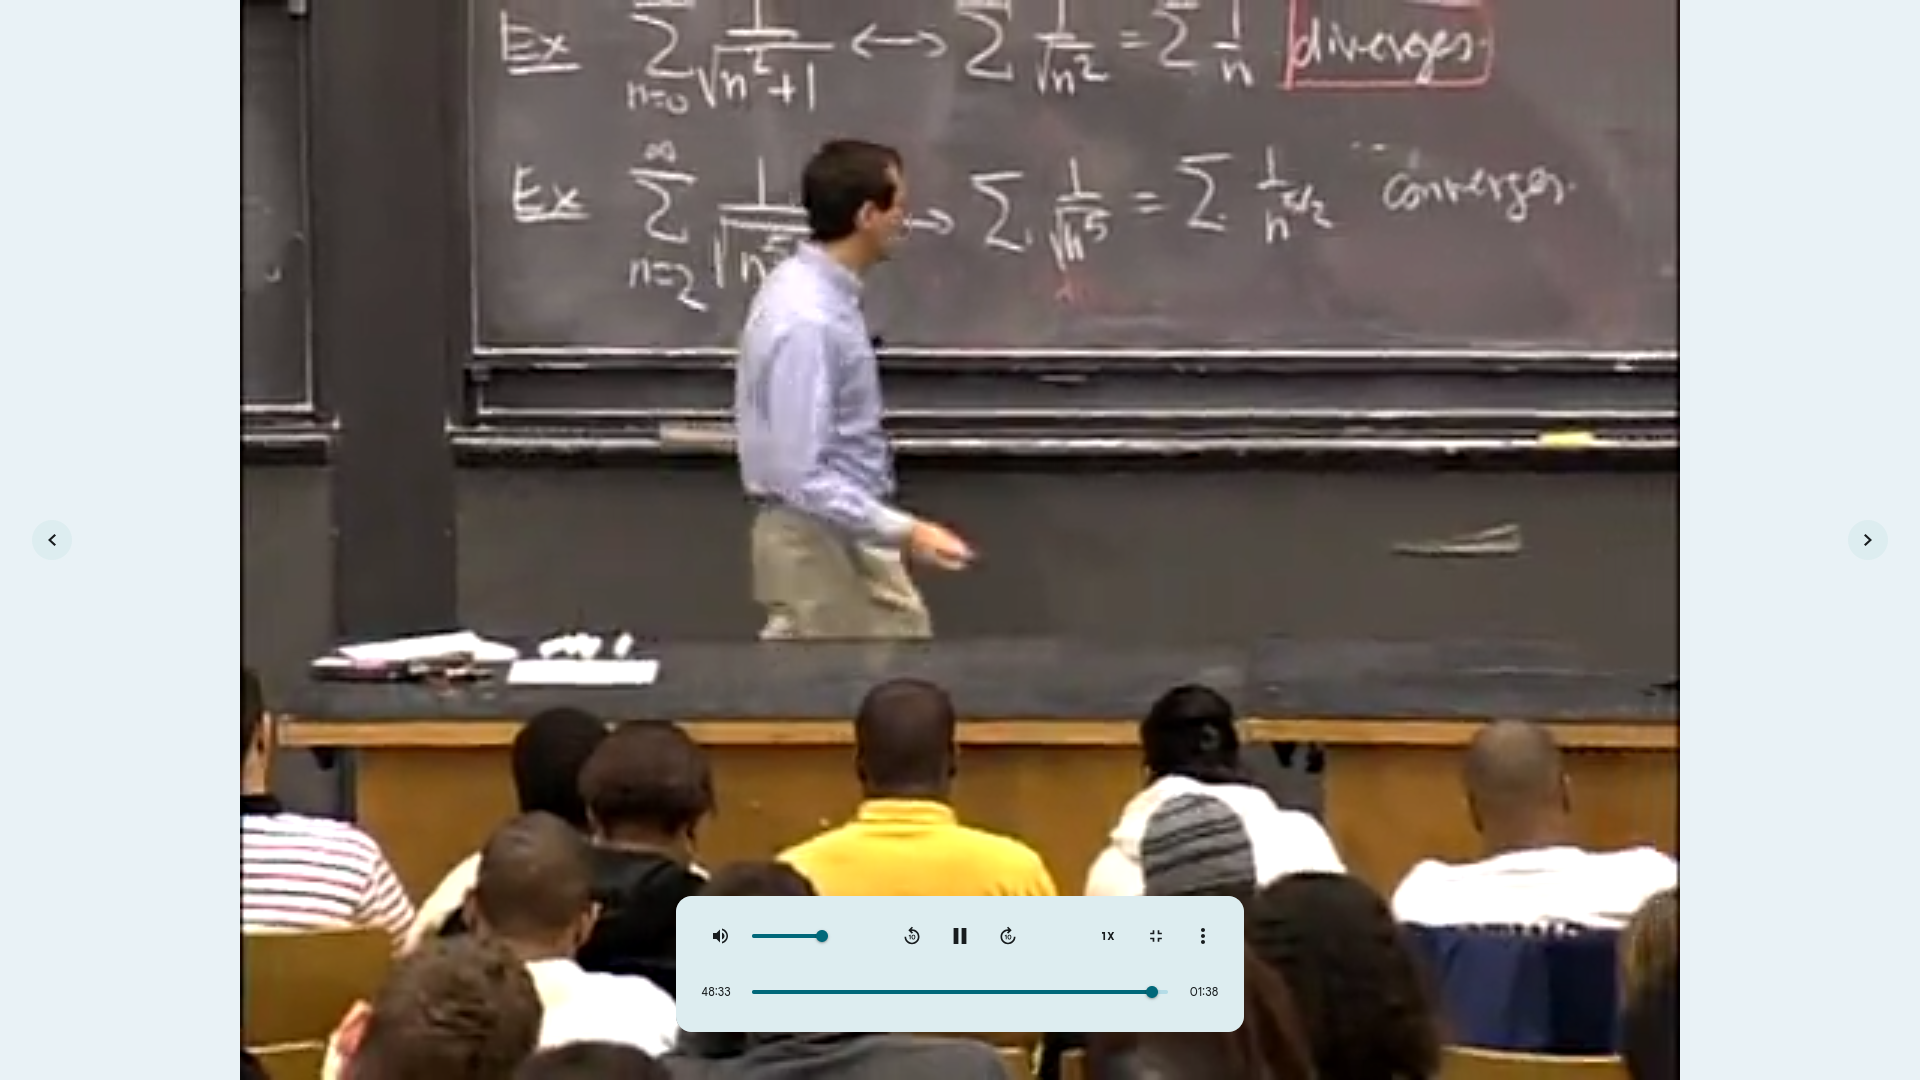 Ex ∑ n=0 1/√(n²+1) ↔ ∑ 1/√n² = ∑ 1/n diverges.
Ex ∞ ∑ n=2 1/√n⁵ → ∑ 1/√n⁵ = ∑ 1/n^5/2 converges.
10 10 1X
48:33 01:38